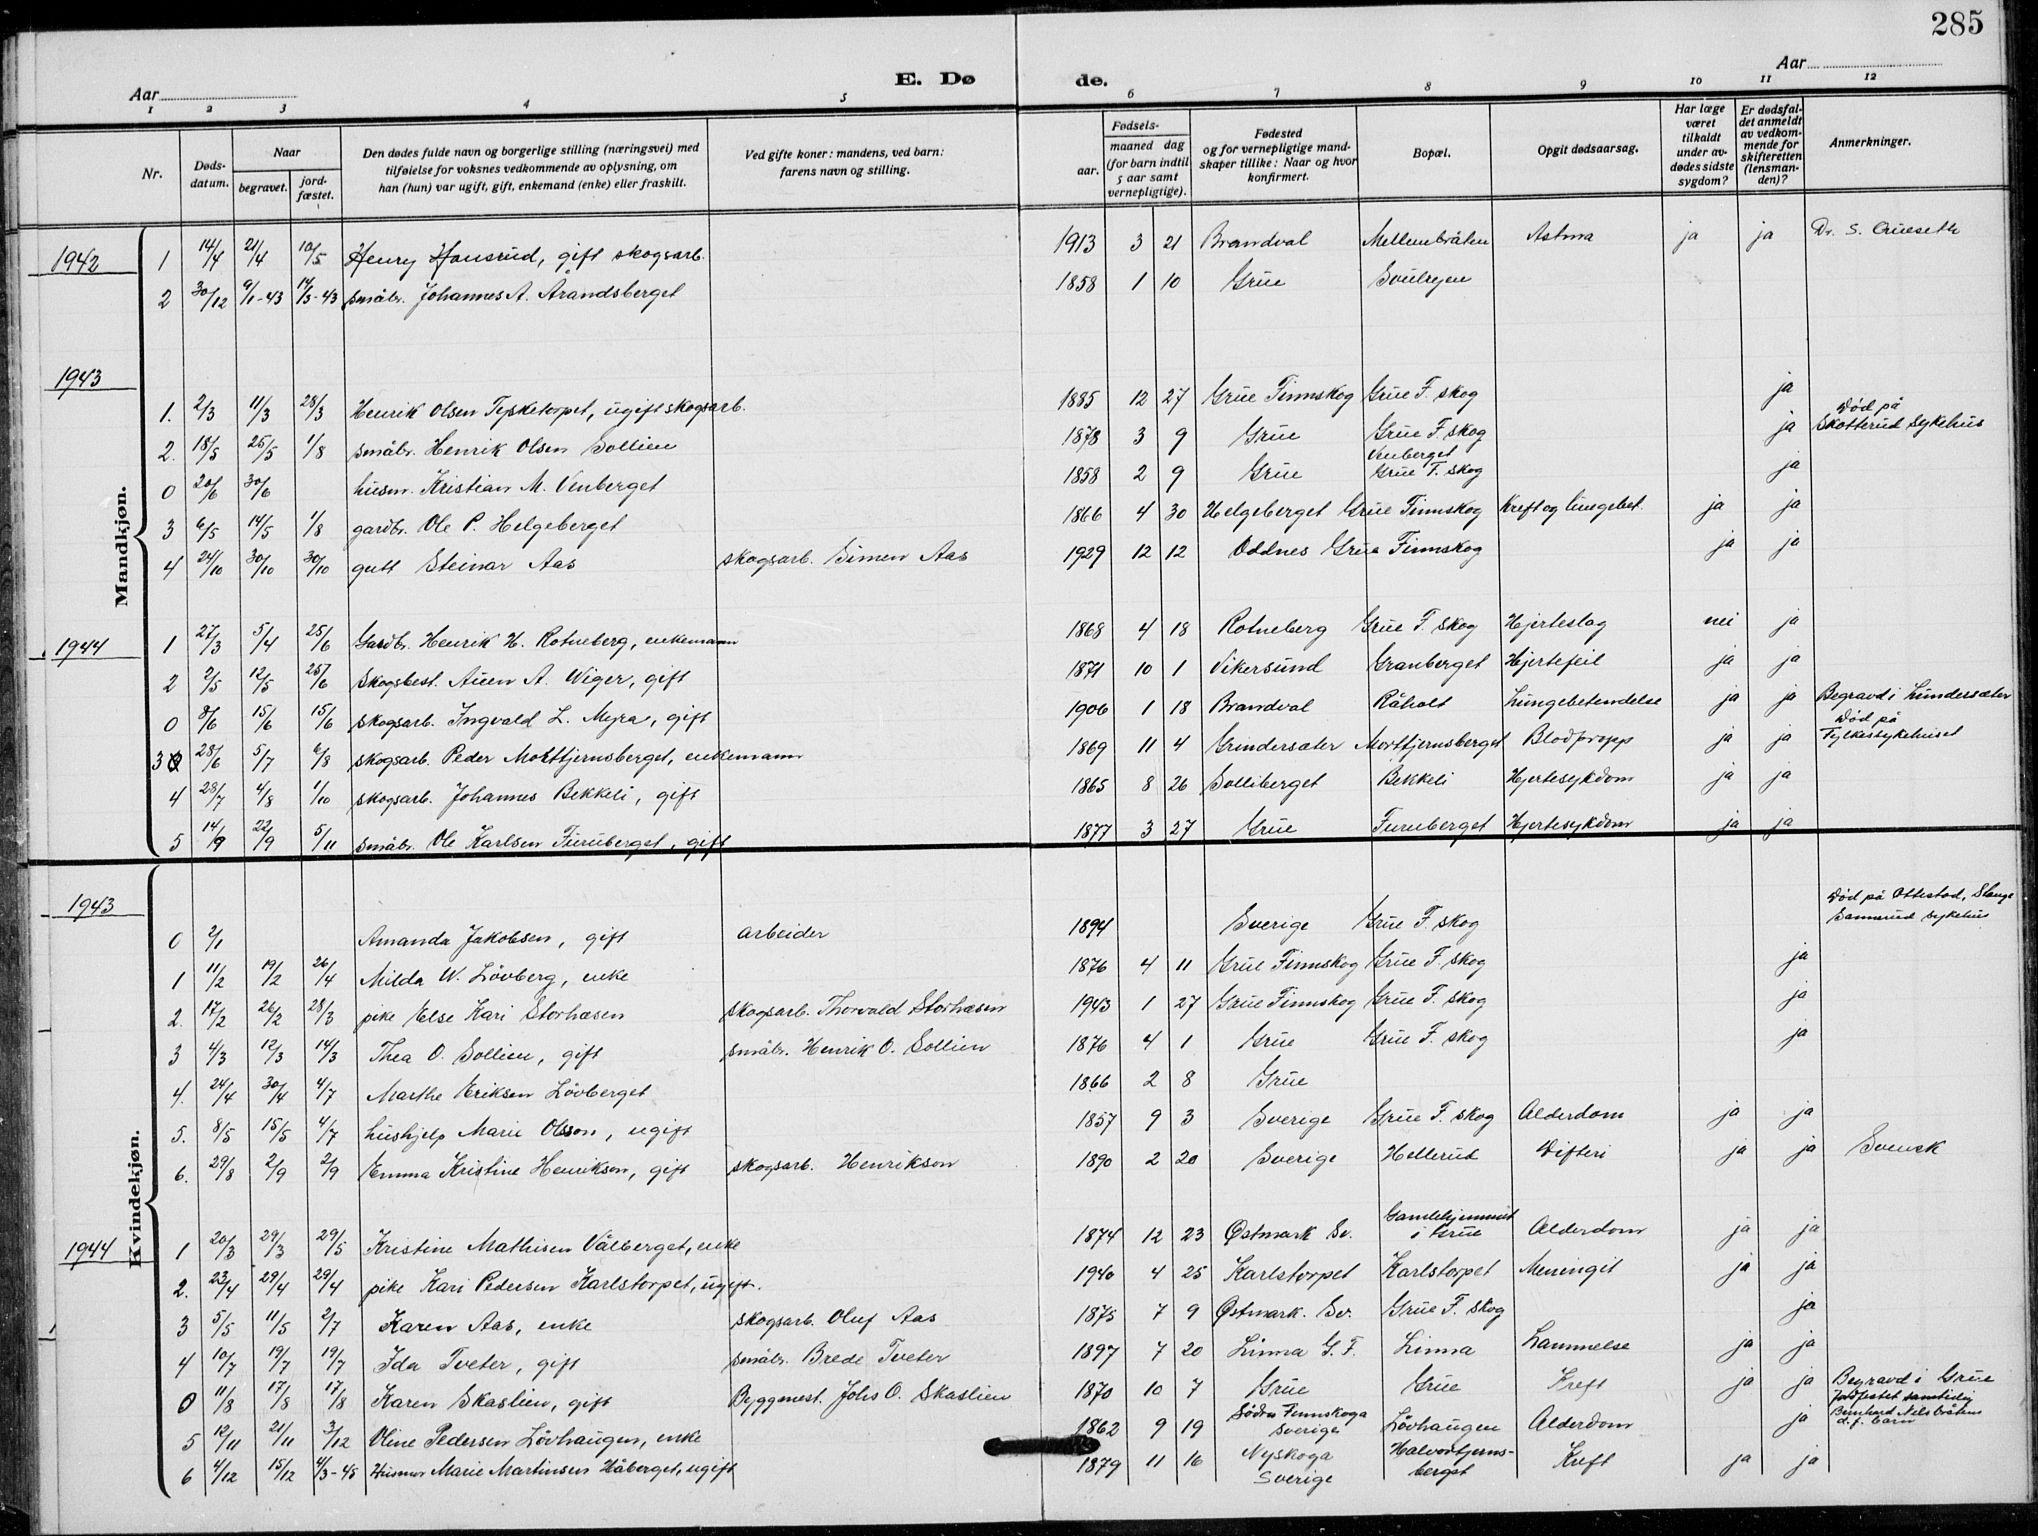 285
E. Dø de.
Aar Aar
1 2 3 4 5 6 7 8 9 10 11 12
Nr. Døds-datum. Naar begravet. jord-fæstet. Den dødes fulde navn og borgerlige stilling (næringsvei) med tilføielse for voksnes vedkommende av oplysning, om han (hun) var ugift, gift, enkemand (enke) eller fraskilt. Ved gifte koner: mandens, ved barn: farens navn og stilling. Fødsels- aar. maaned dag (for barn indtil 5 aar samt vernepligtige). Fødested og for vernepligtige mandskaper tillike: Naar og hvor konfirmert. Bopæl. Opgit dødsaarsag. Har læge været tilkaldt under avdødes sidste sygdom? Er dødsfaldet anmeldt av vedkommende for skifteretten (lensmanden)? Anmerkninger.
Mandkjøn.
1942
1 14/4 21/4 10/5 Henry Hansrud, gift skogsarb. 1913 3 21 Brandval Mellembråten Astma ja ja Dr. S.
2 30/12 9/1-43 14/3-43 småbr. Johannes A. Årandsberget 1858 1 10 Grue Svulryen
1943
1. 2/3 11/3 28/3 Henrik Olsen Tysketorpet, ugift skogsarb. 1885 12 27 Grue Finnskog Grue F. skog ja
2. 18/5 25/5 1/8 småbr. Henrik Olsen Sollien 1878 3 9 Grue Grue F. skog ja Død på Skotterud sykehus
0 20/6 30/6 husm. Kristian M. Venberget 1858 2 9 Grue Venberget Grue F. skog ja
3 6/5 14/5 1/8 gardbr. Ole P. Helgeberget 1866 4 30 Helgeberget Grue Finnskog Kreft og lungebet. ja ja
4 24/10 30/10 30/10 gutt Steinar Aas skogsarb. Simen Aas 1929 12 12 Oddnes Grue Finnskog ja ja
1944
1 27/3 5/4 25/6 Gardbr. Henrik H. Rotneberg, enkemann 1868 4 18 Rotneberg Grue F. skog Hjerteslag nei ja
2 2/5 12/5 25/6 Skogsbest. Auen A. Wiger, gift 1871 10 1 Vikersund Granberget Hjertefeil ja ja
0 8/6 15/6 15/6 skogsarb. Ingvald L. Myra, gift 1906 1 18 Brandval Råholt Lungebetendelse ja ja Begravd i Lundersæter
3 28/6 5/7 6/8 skogsarb. Peder Morttjernsberget, enkemann 1869 11 4 Grindersæter Morttjernsberget Blodpropp ja ja Død på Fylkessykehuset
4 28/7 4/8 1/10 skogsarb. Johannes Bekkeli, gift 1865 8 26 Solliberget Bekkeli Hjertesykdom ja ja
5 14/9 22/9 5/11 småbr. Ole Karlsen Furuberget, gift 1877 3 27 Grue Furuberget Hjertesykdom ja ja
Kvindekjøn.
1943
0 2/1 Amanda Jakobsen, gift arbeider 1894 Sverige Grue F. skog Død på Ottestad, Stange Sanerud sykehus
1 11/2 19/2 26/4 Milda W. Lövberg, enke 1876 4 11 Grue Finnskog Grue F. skog ja
2. 17/2 26/2 28/3 pike Else Kari Storhæsen skogsarb. Thorvald Storhæsen 1943 1 27 Grue Finnskog Grue F. skog ja
3 4/3 12/3 14/3 Thea O. Sollien, gift småbr. Henrik O. Sollien 1876 4 1 Grue Grue F. skog ja
4. 24/4 30/4 4/7 Marthe Eriksen Lövberget 1866 2 8 Grue
5. 8/5 15/5 4/7 hushjelp Marie Olsson, ugift 1857 9 3 Sverige Grue F. skog Alderdom ja ja
6. 29/8 2/9 2/9 Emma Kristine Henrikson, gift skogsarb. Henrikson 1890 2 20 Sverige Hellerud Difteri ja ja Svensk
1944
1 20/3 29/3 29/5 Kristine Mathisen Vålberget, enke 1874 12 23 Østmark Sv. Gamlehjemmet i Grue Alderdom ja ja
2. 23/4 29/4 29/4 pike Kari Pedersen Karlstorpet, ugift. 1940 4 25 Karlstorpet Karlstorpet Meningit ja ja
3 5/5 11/5 2/7 Karen Aas, enke skogsarb. Oluf Aas 1875 7 9 Østmark. Sv. Grue F. skog ja
4 10/7 19/7 19/7 Ida Tveter, gift småbr. Brede Tveter 1897 7 20 Linna G. F. Linna Lammelse ja ja
0 11/8 17/8 17/8 Karen Skaslien, gift Byggmest. Johs O. Skaslien 1870 10 7 Grue Grue Kreft ja ja Begravd i Grue
5 12/11 21/11 3/12 Oline Pedersen Lövhaugen, enke 1862 9 19 Södra Finnskoga Sverige Lövhaugen Alderdom ja Jordfestet samtidig Bernhard Nilsbråtens d.f. barn
6 4/12 15/12 4/3-45 Husmor Marie Martinsen Håberget, ugift 1879 11 16 Nyskoga Sverige Halvortjernsberget Kreft ja ja